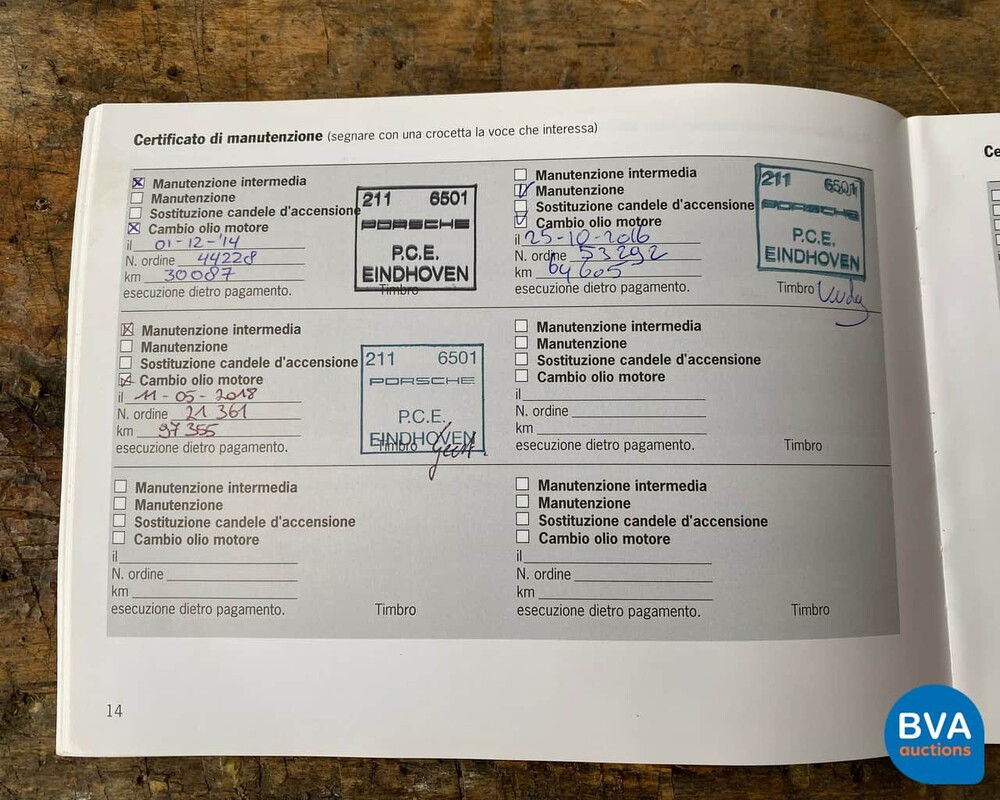 Certificato di manutenzione (segnare con una crocetta la voce che interessa)
Manutenzione intermedia
Manutenzione
Sostituzione candele d'accensione
Cambio olio motore
il 01-12-'14
N. ordine 44228
km 30087
esecuzione dietro pagamento.
Timbro
211 6501
PORSCHE
P.C.E.
EINDHOVEN
Manutenzione intermedia
Manutenzione
Sostituzione candele d'accensione
Cambio olio motore
il 25-10-2016
N. ordine 53292
km 64605
esecuzione dietro pagamento.
Timbro
211 6501
PORSCHE
P.C.E.
EINDHOVEN
Manutenzione intermedia
Manutenzione
Sostituzione candele d'accensione
Cambio olio motore
il 11-05-2018
N. ordine 21361
km 97355
esecuzione dietro pagamento.
Timbro
211 6501
PORSCHE
P.C.E.
EINDHOVEN
Manutenzione intermedia
Manutenzione
Sostituzione candele d'accensione
Cambio olio motore
il
N. ordine
km
esecuzione dietro pagamento.
Timbro
Manutenzione intermedia
Manutenzione
Sostituzione candele d'accensione
Cambio olio motore
il
N. ordine
km
esecuzione dietro pagamento.
Timbro
Manutenzione intermedia
Manutenzione
Sostituzione candele d'accensione
Cambio olio motore
il
N. ordine
km
esecuzione dietro pagamento.
Timbro
14
Ce
BVA
auctions